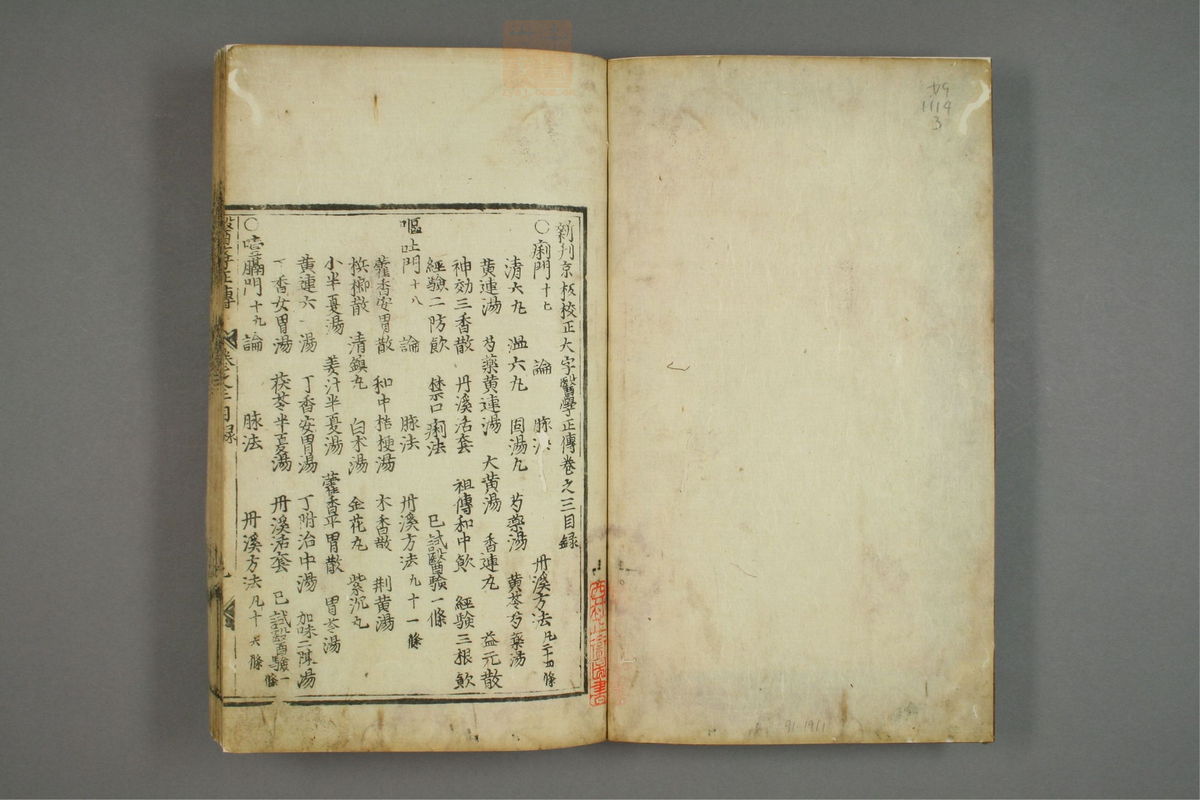 新刋京板校正大字醫學正傳卷之三目録
○痢門十七 論 脉法 丹溪方法凡二十四條
清六丸 溫六丸 固湯丸 芍藥湯 黄芩芍藥湯
黄連湯 芍藥黄連湯 大黄湯 香連丸 益元散
神効三香散 丹溪活套 祖傳和中飲 經驗三根飲
經驗二防飲 禁口痢法 已試醫驗一條
嘔吐門十八 論 脉法 丹溪方法凡十一條
藿香安胃散 和中桔梗湯 木香散 荆黄湯
檳榔散 清鎮丸 白术湯 金花丸 紫沉丸
小半夏湯 姜汁半夏湯 藿香平胃散 胃苓湯
黄連六一湯 丁香安胃湯 丁附治中湯 加味二陳湯
丁香安胃湯 茯苓半夏湯 丹溪活套 已試醫驗一條
○噎膈門十九 論 脉法 丹溪方法凡十六條
醫學正傳 卷之三目録
西村
圖書
1114
3